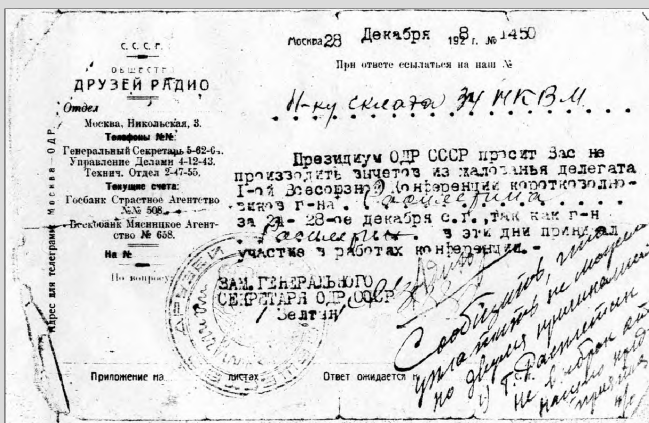 С.С.С.Р.
ОБЩЕСТВО
ДРУЗЕЙ РАДИО
Отдел
Москва, Никольская, 3.
Телефоны №№:
Генеральный Секретарь 5-62-6
Управление Делами 4-12-43.
Технич. Отдел 2-47-55.
Текущие счета:
Госбанк Страстное Агентство
№№ 508.
Всекобанк Мясницкое Агент-
ство № 658.
На №
По вопросу
Адрес для телеграмм Москва—ОДР.
Москва 28 Декабря 1928 г. № 1450
При ответе ссылаться на наш №
Н-ку склада 34 НКВМ
Президиум ОДР СССР просит Вас не
производить вычетов из жалованья делегата
I-ой Всесоюзной Конференции коротковолно-
виков г-на
за 24-28-ое декабря с.г., так как г-н
в эти дни принимал
участие в работах конференции.-
ЗАМ. ГЕНЕРАЛЬНОГО
СЕКРЕТАРЯ ОДР СССР
Зелтин
Приложение на листах.
Ответ ожидается к
Сообщить, что
уплатить не можем
по двум причинам